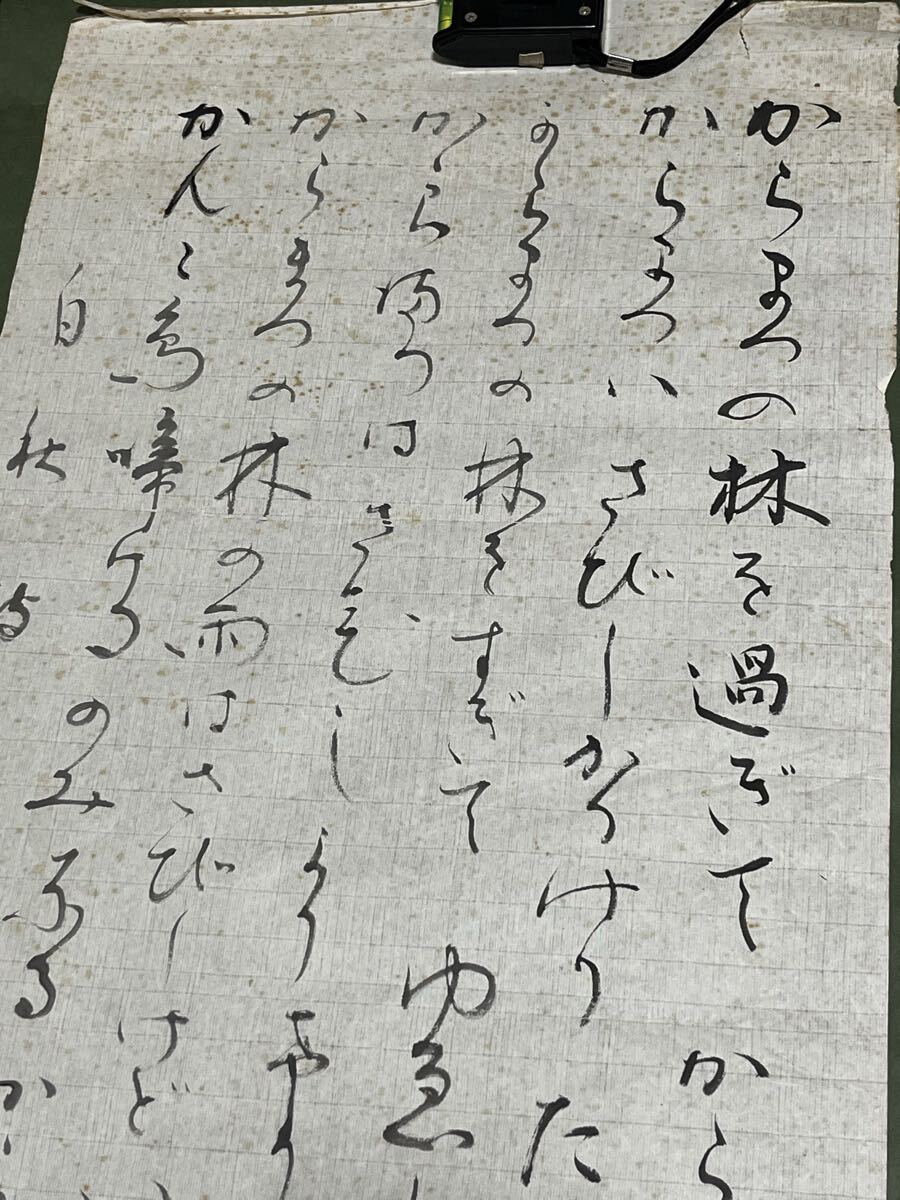 からまつの林を過ぎて から
からまつハ さびしかりけり た
からまつの林をすぎて ゆゑし
から満つは さびし
からまつの林の雨はさびしけど
かんこ鳥啼けるのみなる か
白秋詩